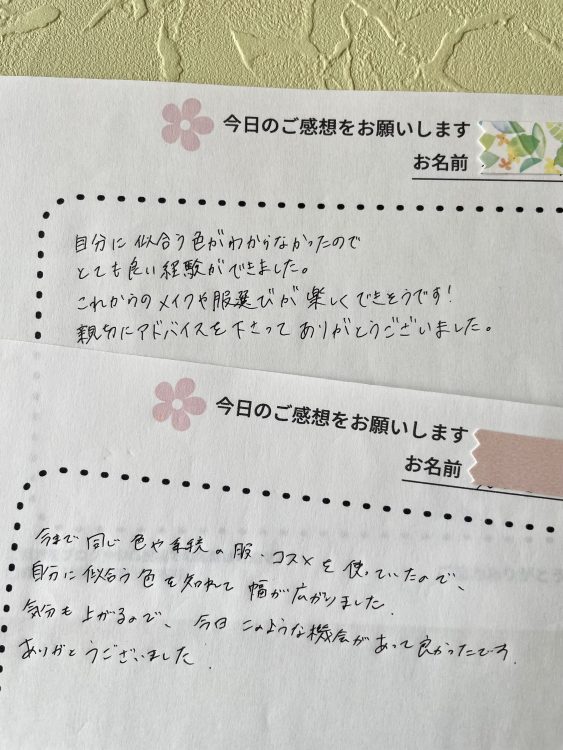 今日のご感想をお願いします
お名前
自分に似合う色がわからなかったので
とても良い経験ができました。
これからのメイクや服選びが楽しくできそうです!
親切にアドバイスを下さってありがとうございました。
今日のご感想をお願いします
お名前
今まで同じ色や系統の服・コスメを使っていたので、
自分に似合う色を知れて幅が広がりました.
気分も上がるので、今日このような機会があって良かったです.
ありがとうございました.